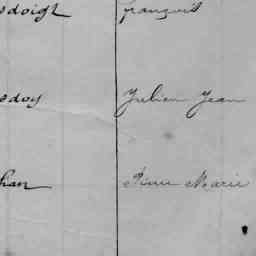 sdoigt François
sdoy Julien Jean
han Pierre Marie